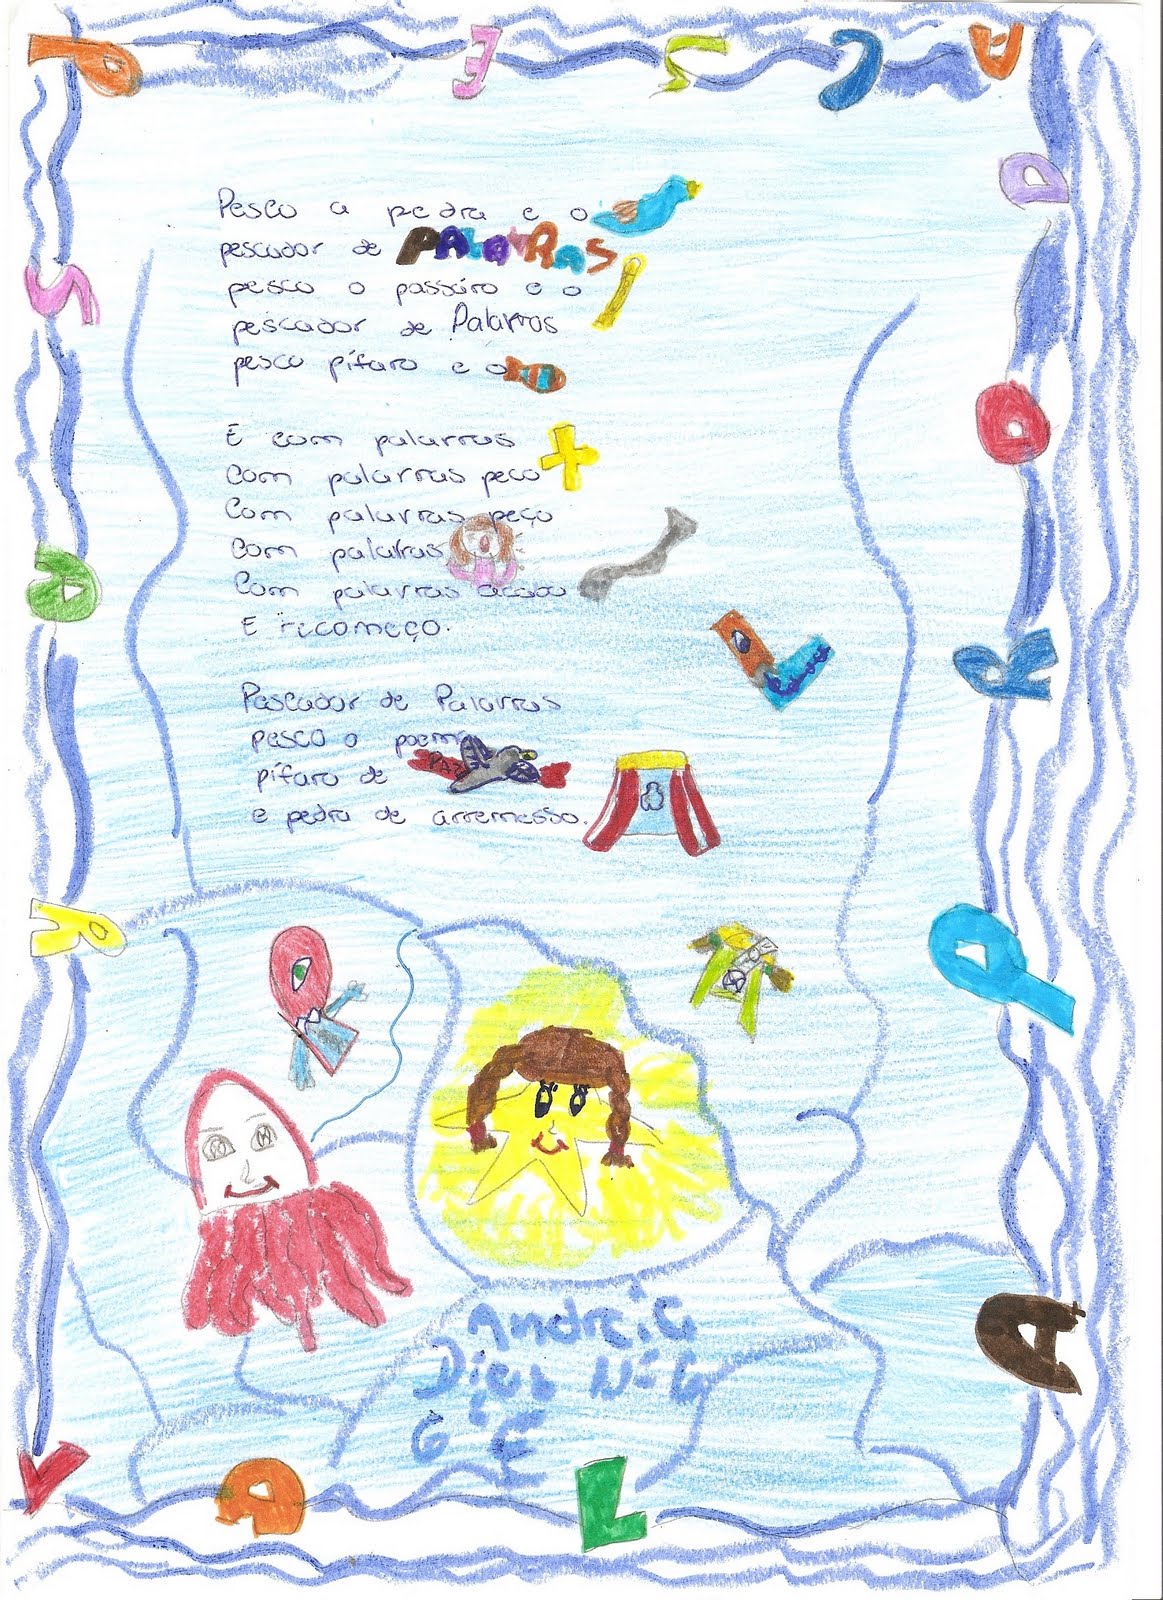 PESCADOR
DE
PALAVRAS
Pesco a pedra e o
pescador de PALAVRAS
pesco o passáro e o
pescador de Palavras
pesco pífaro e o
E com palavras
Com palavras peco
Com palavras peço
Com palavras
Com palavras acabo
E recomeço.
Pescador de Palavras
pesco o poema
pífaro de PAZ
e pedra de arremesso.
Andreia
Dias Nº6
6º E